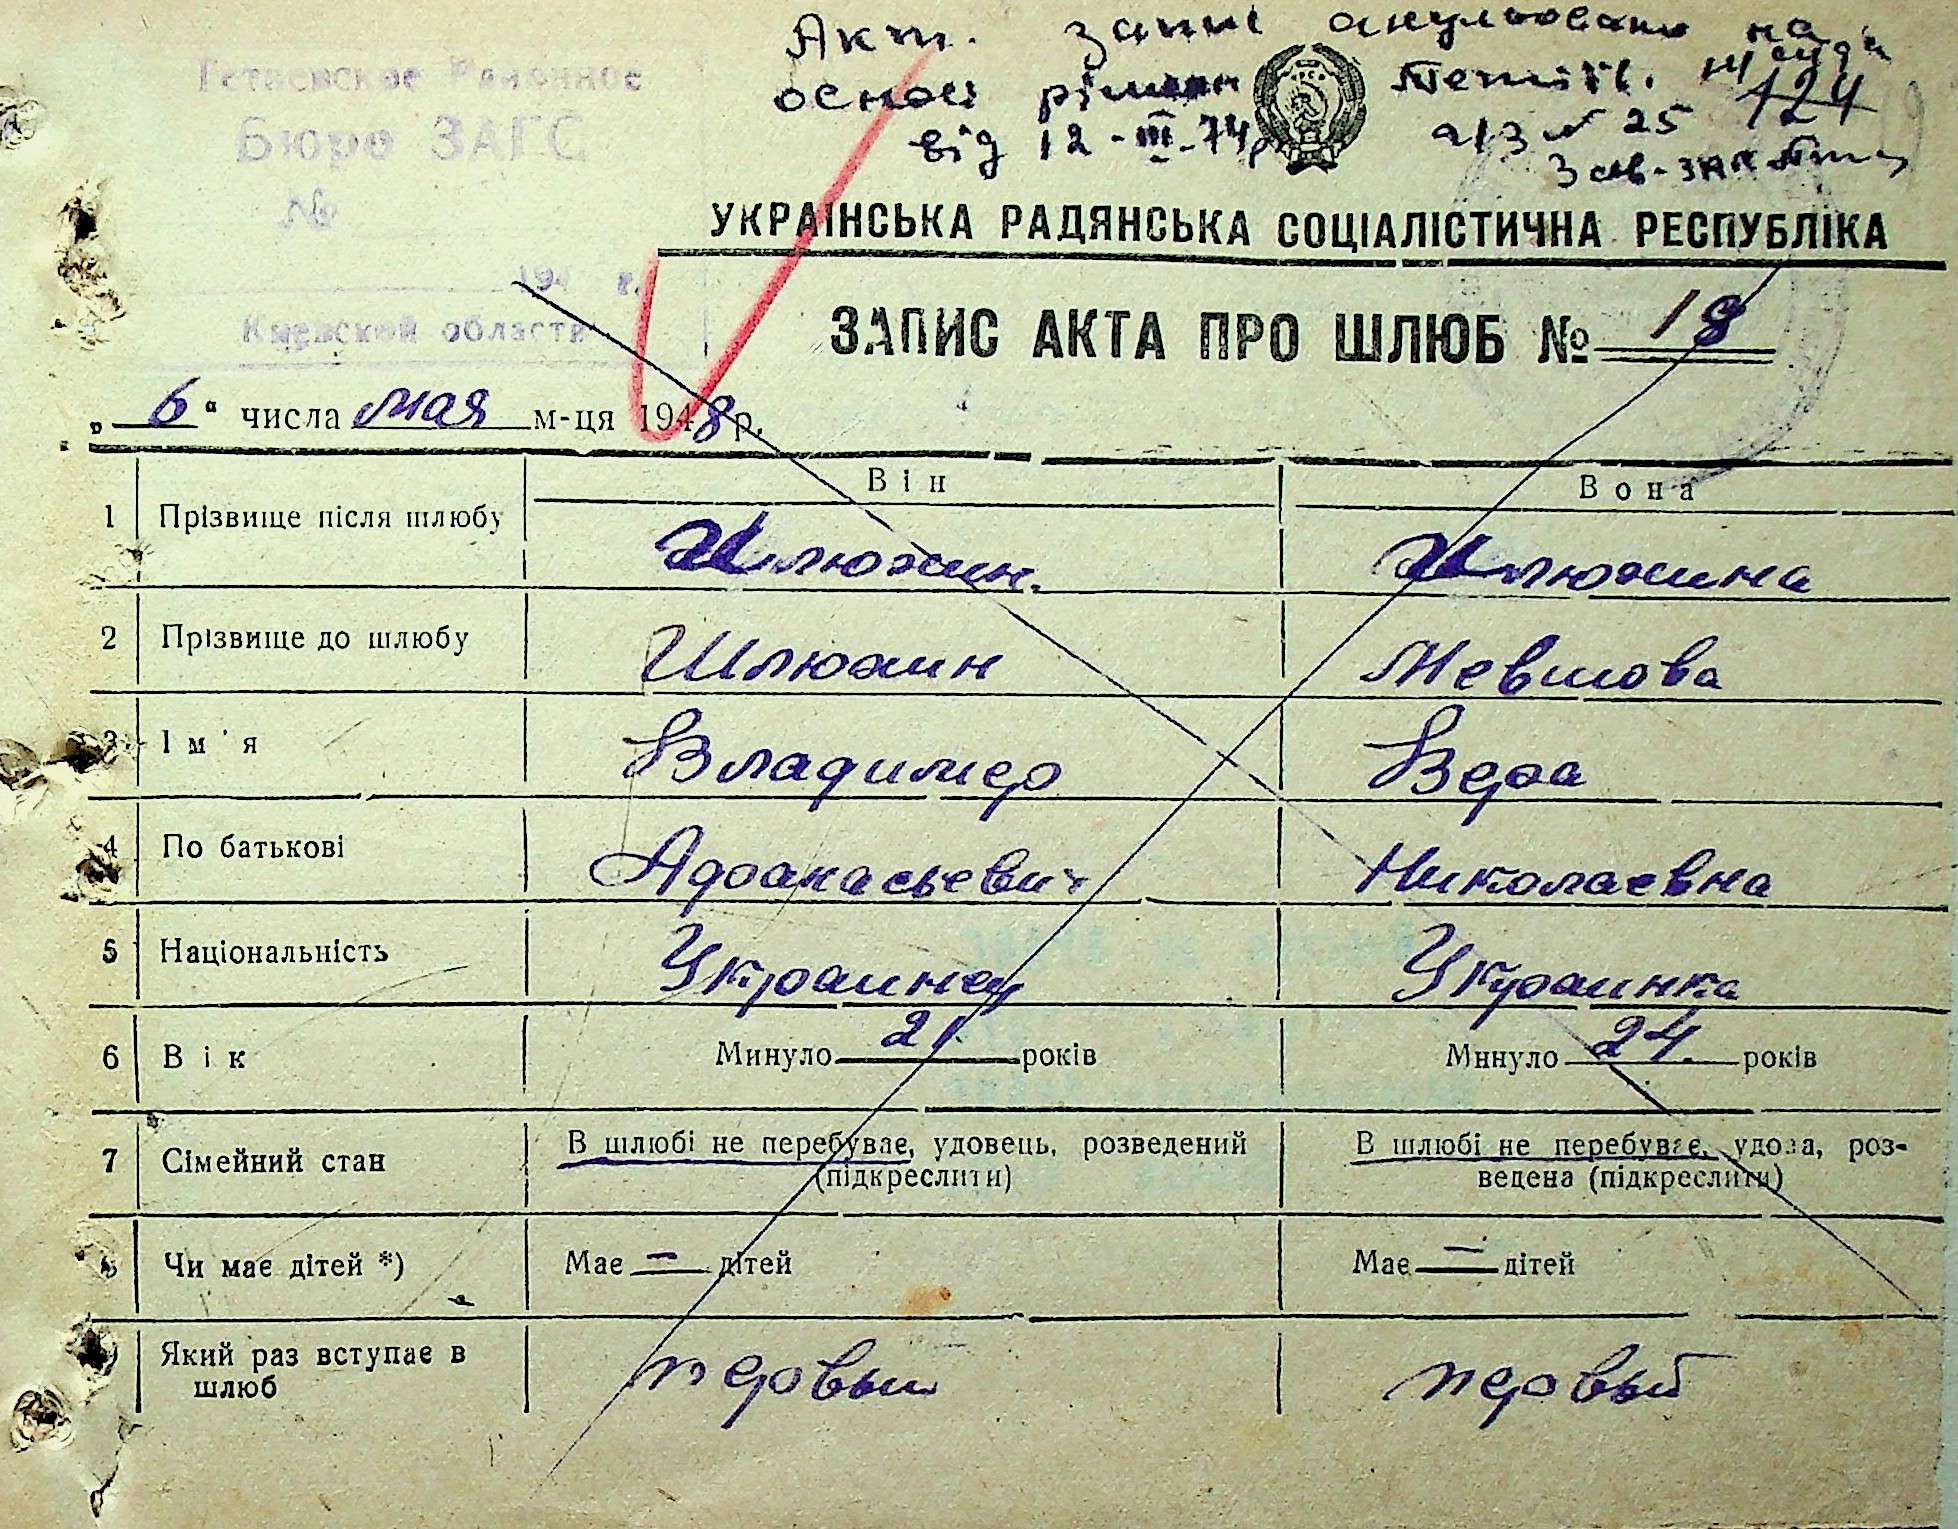 Акт. запис анульовано на
основі рішен
від 12-III-74р. а/з № 25 124
Тетиевское Районное
Бюро ЗАГС
№
194 г.
Киевской области
УКРАЇНСЬКА РАДЯНСЬКА СОЦІАЛІСТИЧНА РЕСПУБЛІКА
ЗАПИС АКТА ПРО ШЛЮБ № 18
„ 6 “ числа мая м-ця 1948 р.
Він Вона
1 Прізвище після шлюбу Шлюхин. Шлюхина
2 Прізвище до шлюбу Шлюхин
3 Ім'я Владимер Вера
4 По батькові Афанасьевич Николаевна
5 Національність Украинец Украинка
6 Вік Минуло 21 років Минуло 24. років
7 Сімейний стан В шлюбі не перебуває, удовець, розведений (підкреслити) В шлюбі не перебуває, удова, роз-
ведена (підкреслити)
8 Чи має дітей *) Має — дітей Має — дітей
Який раз вступає в шлюб первый первый